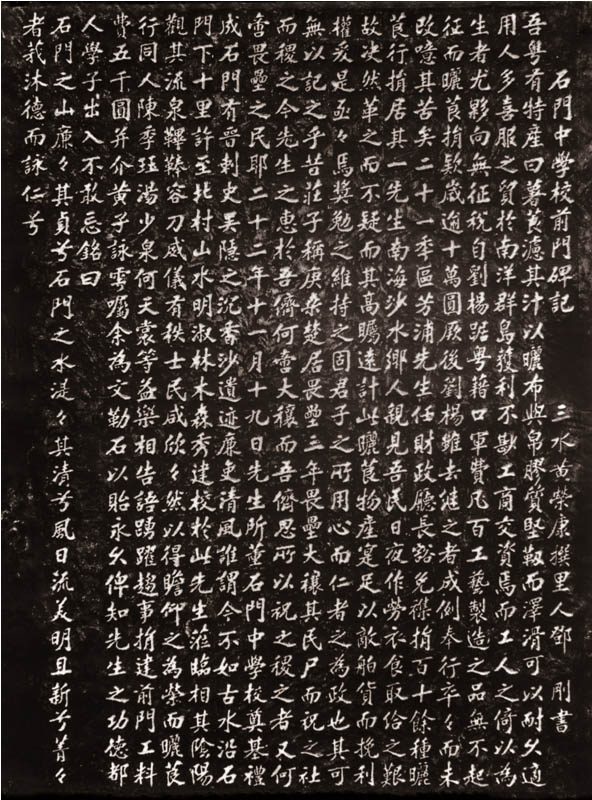 石門中學校前門碑記　三水黃榮康撰里人鄧　剛書
吾粵有特產曰薯莨濾其汁以曬布與帛膠質堅韌而澤滑可以耐久適
用人多喜服之貿於南洋群島獲利不尠工商交資焉而工人之倚以為
生者尤夥向無征稅自劉楊踞粵藉口軍費凡百工藝製造之品無不起
征而曬莨捐欵歲逾十萬圓厥後劉楊雖去繼之者成例奉行卒々而未
改噫其苦矣二十一季區芳浦先生任財政廳長豁免襍捐百十餘種曬
莨行捐居其一先生南海沙水鄉人親見吾民日夜作勞衣食取給之艱
故決然革之而不疑而其高矚遠計此曬莨物產寔足以敵舶貨而挽利
權爰是亟々焉獎勉之維持之固君子之所用心而仁者之為政也其可
無以記之乎昔莊子稱庚桑楚居畏壘三年畏壘大穰其民尸而祝之社
而稷之今先生之惠於吾儕何啻大穰而吾儕思所以祝之稷之者又何
啻畏壘之民耶二十二年十一月十九日先生所董石門中學校奠基禮
成石門有晉刺史吳隱之沉香沙遺迹廉吏清風誰謂今不如古水沿石
門下十里許至北村山水明淑林木森秀建校於此先生蒞臨相其陰陽
觀其流泉鞞鞛容刀威儀有秩士民咸欣々然以得瞻仰之為榮而曬莨
行同人陳季珏湯少泉何天裳等益樂相告語踴躍趨事捐建前門工料
費五千圓并介黃子詠雩囑余為文勒石以貽永久俾知先生之功德都
人學子出入不敢忘銘曰
石門之山廉々其貞兮石門之水湜々其清兮風日流美明且新兮菁々
者莪沐德而詠仁兮